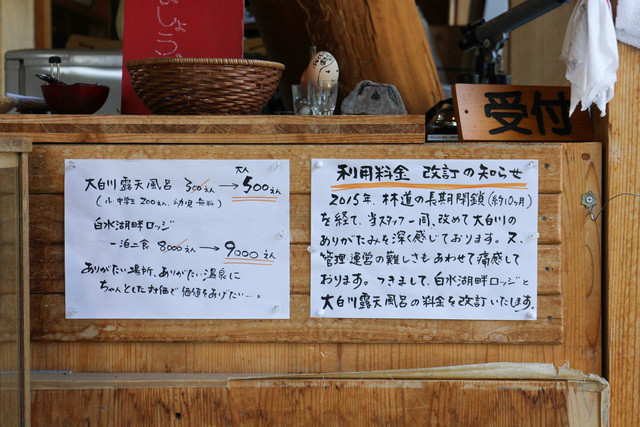 しょう
受付
大白川露天風呂 300円→大人500円
(小中学生 200円、幼児無料)
白水湖畔ロッジ
一泊二食 8,000円→9,000円
ありがたい場所、ありがたい温泉に
ちゃんとした対価で価値をあげたい…。
利用料金 改訂の知らせ
2015年、林道の長期閉鎖(約10ヶ月)
を経て、当スタッフ一同、改めて大白川の
ありがたみを深く感じております。又、
管理運営の難しさもあわせて痛感して
おります。つきまして、白水湖畔ロッジと
大白川露天風呂の料金を改訂いたします。